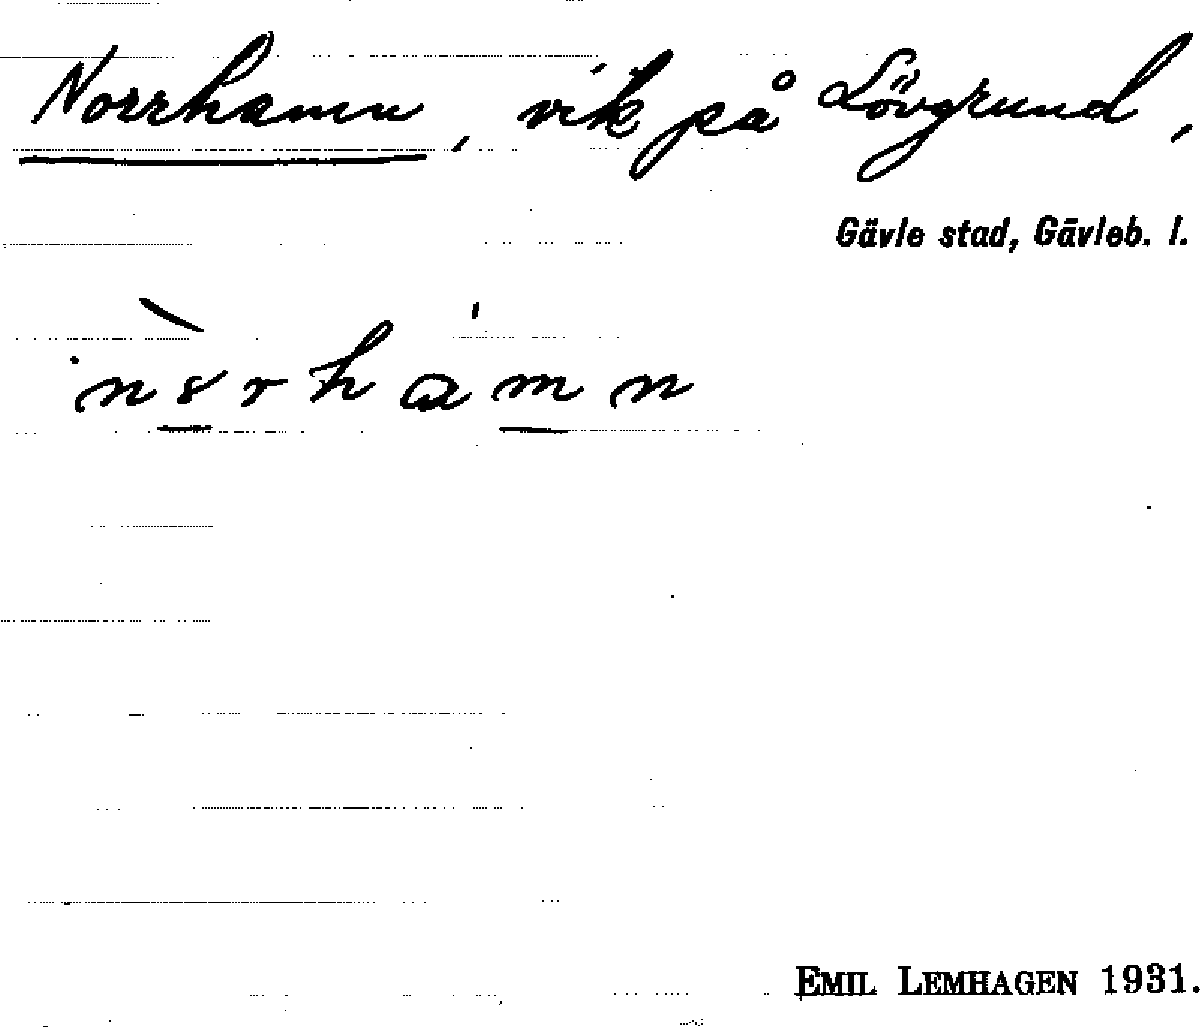 Norrhamn, vik på Lövgrund,
Gävle stad, Gävleb. l.
EMIL LEMHAGEN 1931.